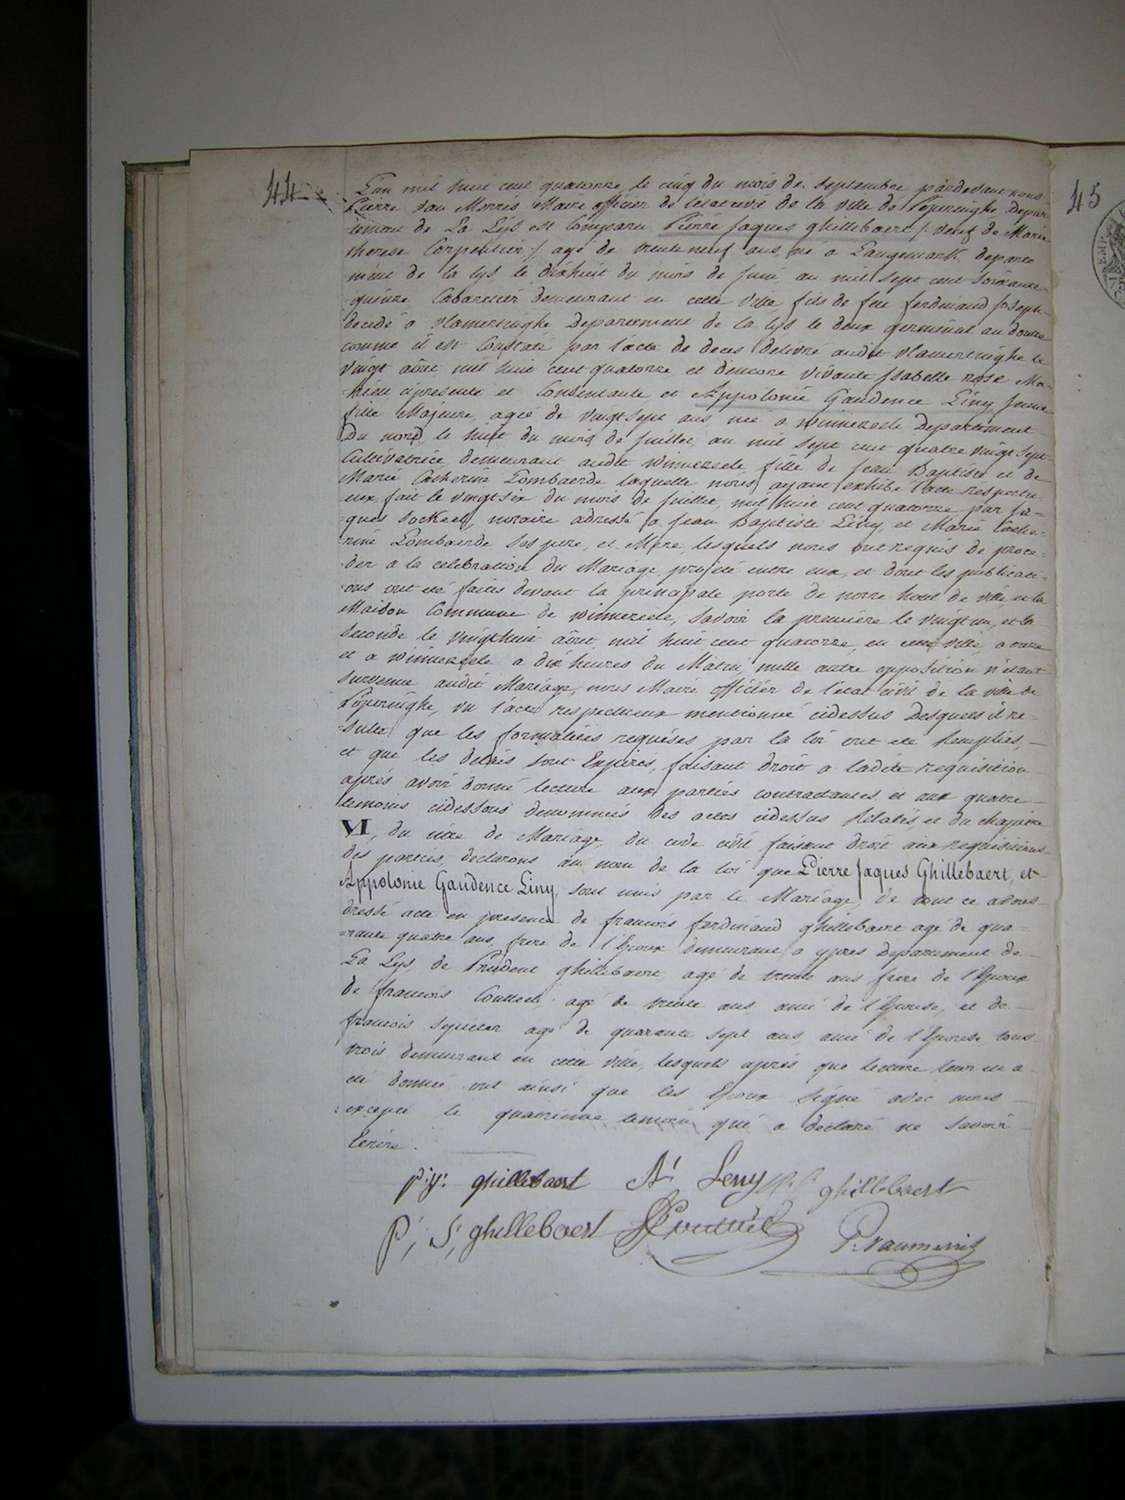 44
45
L'an mil huit cent quatorze, le cinq du mois de Septembre pardevant nous
Pierre Van Merris Maire officier de l'etat civil de la ville de Poperinghe Depar-
tement de La Lys est Comparu Pierre Jaques ghillebaert /: veuf de Marie
therese Corpelitier :/ agé de trente neuf ans, né a Langemarck departe
ment de la lys le dixhuit du mois de Juin au mil sept cent soixante
quinze Cabaretier demeurant en cette Ville fils de feu ferdinand Joseph
decedé a vlamertinghe Departement de la lys le deux germinal an douze
comme il est Constaté par l'acte de deces delivré audit vlamertinghe le
vingt août mil huit cent quatorze et d'encore vivante Isabelle rose Ma-
hieu cipresente et Consentante, et Appolonie Gaudence Liny Jeune
fille Majeure, ageé de vingt sept ans neé a winnezeele Departement
Du nord le huit du mois de Juillet, au mil sept cent quatre vingt sept
Cultivatrice demeurant audit winnezeele fille de Jean Baptiste et de
Marie Catherine Lombaerde laquelle nous ayant exhibé l'acte respectu-
eux fait le vingtsix du mois de Juillet, mil huit cent quatorze par Ja-
ques notaire adressé a Jean Baptiste Liny et Marie Cathe-
rine Lombaerde ses pere, et Mere, lesquels nous ont requis de proce-
der a la celebration du Mariage projeté entre eux, et dont les publicati-
ons ont eté faites devant la principale porte de notre hotel de ville et la
Maison Commune de winnezeele, savoir la premiere le vingt un, et la
seconde le vingthuit août mil huit cent quatorze, en cette ville, a onze
et a winnezeele a dix heures du Matin nulle autre opposition n'étant
survenue audit Mariage, nous Maire officier de l'etat civil de la ville de
Poperinghe, vu l'acte respectueux mentionné cidessus desquels il re-
sulte que les formalites requises par la loi ont eté Remplies,
et que les delais sont Expirés, faisant droit a ladite requisition
aprés avoir donné lecture aux parties contractantes, et aux quatre
temoins cidessous denommés des actes cidessus Relatés, et du chapitre
VI, du titre de Mariage, du code civil faisant droit aux requisitions
des parties, declarons au nom de la loi que Pierre Jaques Ghillebaert, et
Appolonie Gaudence Liny, sont unis par le Mariage, de tout ce avons
dressé acte en presence de francois ferdinand ghillebaert agé de qua-
rante quatre ans, frere de l'Epoux demeurant a ypres departement de
La Lys, de Prudent ghillebaert agé de trente ans frere de l'Epoux
de francois agé de trente ans ami de l'Epouse, et de
francois agé de quarante sept ans ami de l'Epouse tous
trois demeurant en cette ville, lesquels aprés que lecture leur en a
eté donnée ont ainsi que les Epoux Signé avec nous
excepté le quatrieme temoin qui a declaré ne savoir
Ecrire.
p: j: ghillebaert A: Leny ghillebaert
P, S, ghillebaert P. vanmerris